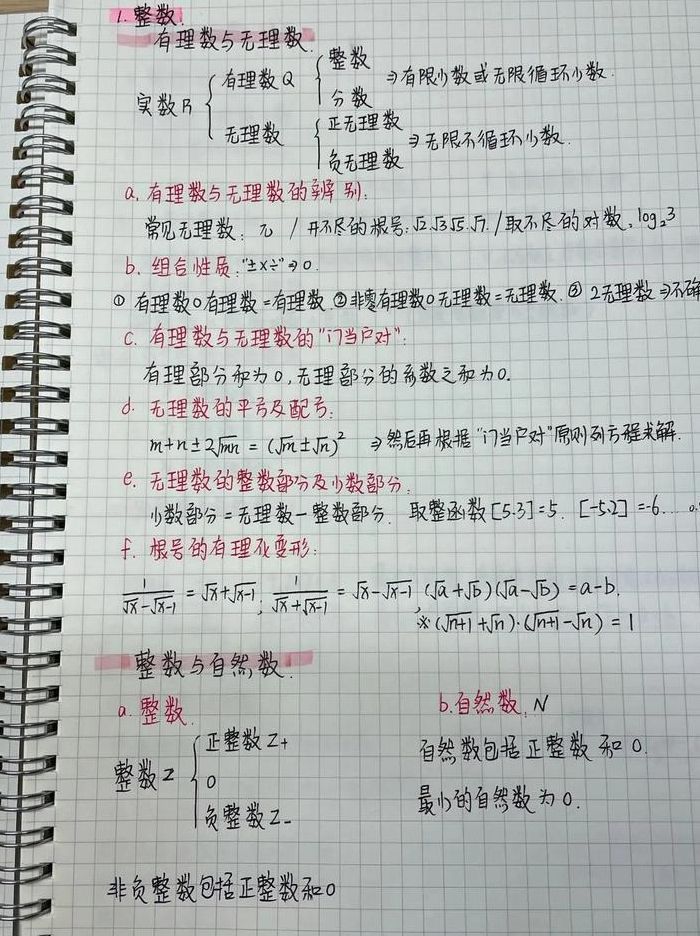 1. 整数.
有理数与无理数.
实数R { 有理数Q { 整数 分数 ⇒有限小数或无限循环小数.
无理数 { 正无理数 负无理数 ⇒无限不循环小数.
a. 有理数与无理数的辨别:
常见无理数: π / 开不尽的根号: √2.√3.√5.√7. / 取不尽的对数, log₂3
b. 组合性质. "±×÷"⇒○.
① 有理数○有理数=有理数. ② 非零有理数○无理数=无理数. ③ 2无理数⇒不确
c. 有理数与无理数的"门当户对":
有理部分和为0, 无理部分的系数之和为0.
d. 无理数的平方及配方:
m+n±2√mn = (√m±√n)² ⇒然后再根据"门当户对"原则列方程求解.
e. 无理数的整数部分及小数部分.
小数部分=无理数-整数部分. 取整函数[5.3]=5. [-5.2]=-6....
f. 根号的有理化变形:
1/(√x-√x-1) = √x+√x-1; 1/(√x+√x-1) = √x-√x-1, (√a+√b)(√a-√b)=a-b.
※(√n+1+√n)·(√n+1-√n)=1
整数与自然数.
a. 整数.
整数Z { 正整数Z+ 0 负整数Z-
非负整数包括正整数和0
b. 自然数, N
自然数包括正整数和0.
最小的自然数为0.